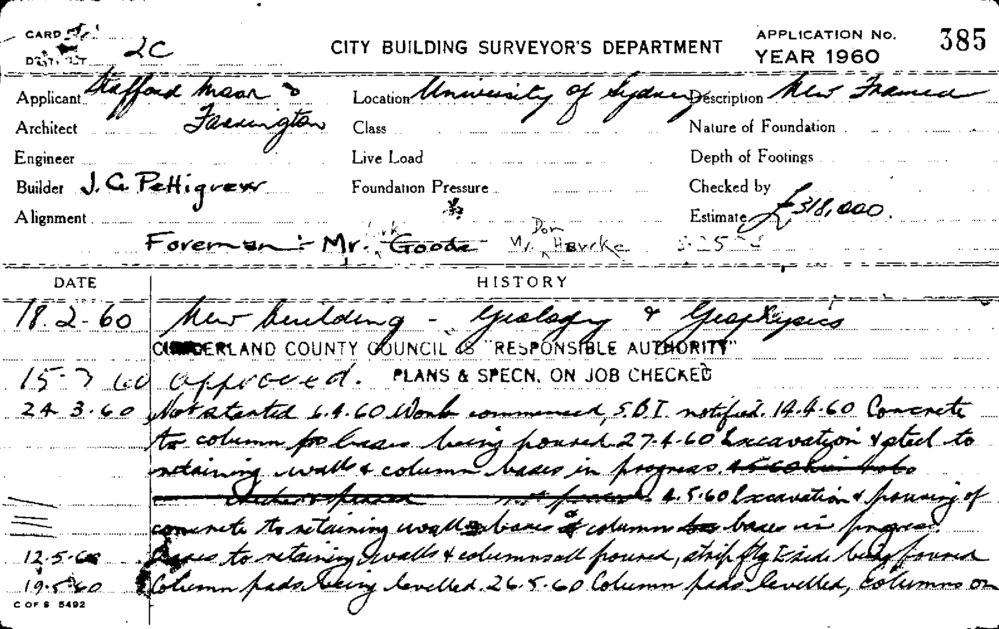 CARD
DISTRICT 2C
CITY BUILDING SURVEYOR'S DEPARTMENT
APPLICATION No. 385
YEAR 1960
Applicant Stafford Moor &
Location University of Sydney
Description New Framed
Architect Farrington
Class
Nature of Foundation
Engineer
Live Load
Depth of Footings
Builder J. C. Pettigrew
Foundation Pressure
Checked by
Alignment
Estimate £318,000.
Foreman :- Mr. Goode Mr. Don
DATE HISTORY
18.2-60 New building - Geology & Geophysics
CUMBERLAND COUNTY COUNCIL IS "RESPONSIBLE AUTHORITY"
15-3 60 approved. PLANS & SPECN. ON JOB CHECKED
24 3.60 Not started 6.4.60 Work commenced, S.B.I. notified. 14.4-60 Concrete
to column bases being poured 27-4-60 Excavation & steel to
retaining walls & column bases in progress.
4.5.60 Excavation & pouring of
concrete to retaining walls bases & column bases in progress
12.5.60 Bases to retaining walls & columns all poured, strip ftg E side being poured
19.5.60 Column pads being levelled. 26.5.60 Column pads levelled, columns on
C OF S 5492